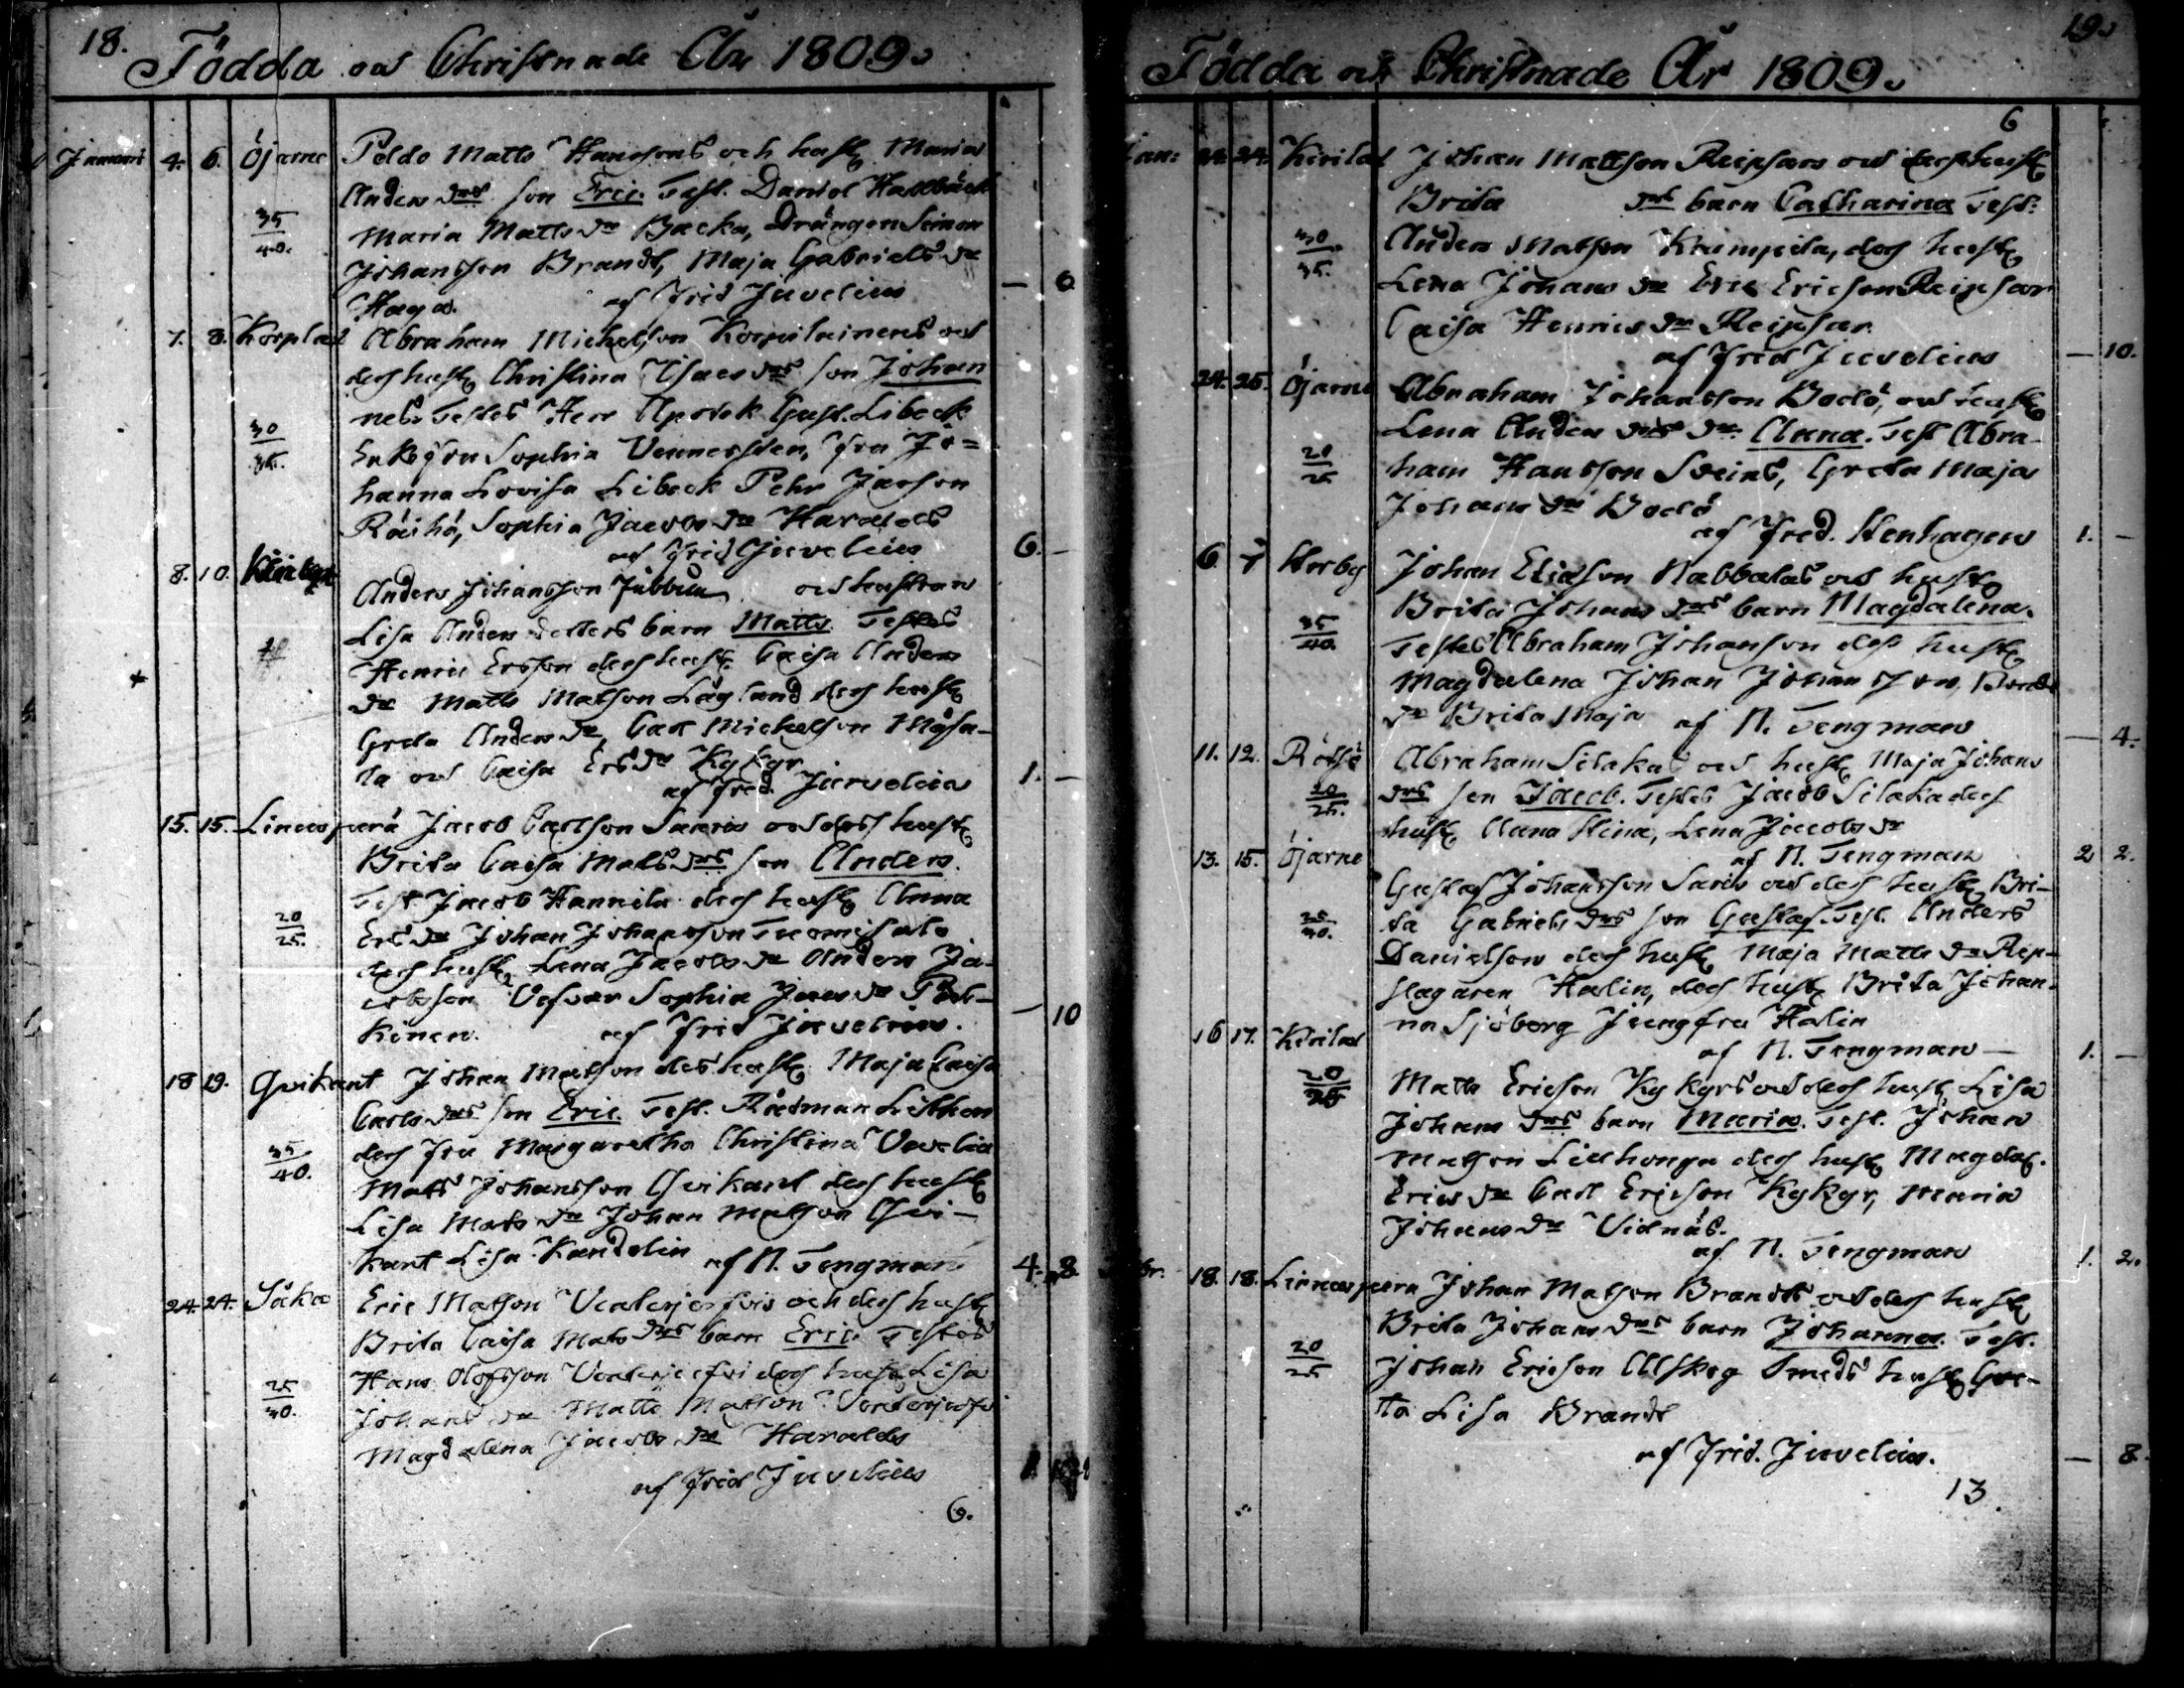 18.
Födda och Christnade År 1809.
Januari 4. 6. Öjarne Matts Hanssons och hust. Maria
Anders drs son Eric. Test. Daniel
35/40. Maria Matts dr Backa, Drängen Simon
Johansson Brandt, Maja Gabriels dr
Haga. af Frid Juvelius — 6
7. 8. Korplax Abraham Michelson Korpilainens och
dess hust. Christina Isacs drs son Johan
nes. Testes Herr Apotek Gust. Libeck
30/35. Enkefru Sophia Fru Jo=
hanna Lovisa Libeck Pehr Jacson
Räihä, Sophia Jacobs dr Haralds
af Frid Juvelius 6. —
8. 10. Anders Johansson och hustrun
Lisa Anders dotters barn Matts. Testes
Henric Ersson dess hust. Caisa Anders
dr Matts Matson Lågland dess hust.
Greta Anders dr, Carl Michelson Måsa-
la och Caisa Ers dr Kykyr
af Fred. Juvelius 1. —
15. 15. Linnus perä Jacob Carlson Saaris och dess hust.
Brita Caisa Mats drs son Anders.
Test Jacob Hannila dess hust. Anna
20/25. Ers dr Johan Johansson
dess hust. Lena Jacobs dr Anders Ja-
cobsson Sophia Jacs dr
kinen. af Frid Juvelius. — 10
18 19. Qvikant Johan Matson dess hust. Maja Caisa
Carls drs son Eric. Test. Rådman
35/40. dess fru Margaretha Christina
Mats Johansson Qvikant dess hust.
Lisa Mats dr Johan Matson Qvi-
kant Lisa Kandelin af N. Tengman 4. 8.
24. 24. Såka Eric Matson och dess hust.
Brita Caisa Mats drs barn Eric Testes
25/30. Hans Olofsson dess hust. Lisa
Johans dr Matts Matson
Magdalena Jacobs dr Haralds
af Frid Juvelius
6.
19.
Födda och Christnade År 1809.
6
Jan: 22. 24. Kivilax Johan Mattson Reipsars och dess hust.
Brita drs barn Catharina Test.
30/35. Anders Matson Krimpila, dess hust.
Lena Johans dr Eric Ericson Reipsar
Caisa Henrics dr Reipsar
af Frid Juvelius — 10.
24. 25. Öjarne Abraham Johansson Bodö, och hust.
Lena Anders drs dr Anna. Test Abra-
20/25 ham Hansson Sveins, Greta Maja
Johans dr Bodö
af Fred. Stenhagen 1. —
6 7 Storby Johan Ericson Nabbalas och hust.
Brita Johans drs barn Magdalena.
35/40. Testes Abraham Johanson dess hust.
Magdalena Johan
dr Brita Maja af N. Tengman — 4.
11. 12. Rötsö Abraham Silakas och hust. Maja Johans
20/25. drs son Jacob. Testes Jacob Silaka dess
hust. Anna Stina, Lena Jacobs dr
af N. Tengman 2 2.
13. 15. Öjarne Gustaf Johansson Saris och dess hust. Bri-
35/40. ta Gabriels drs son Gustaf. Test. Anders
Danielson dess hust. Maja Matts dr Rep-
slagaren Halin, dess hust. Brita Johan-
na Sjöberg Jungfru Halin
af N. Tengman — 1. —
16 17. Kivilax
20/25 Matts Ericson Kykyrs och dess hust. Lisa
Johans drs barn Maria. Test. Johan
Matson Lillhonga dess hust. Magdal.
Erics dr Carl Ericson Kykyr, Maria
Johans dr Vidnäs.
af N. Tengman 1. 2.
Febr. 18. 18. Linnus perä Johan Matson Brandts och dess hust.
Brita Johans drs barn Johannes. Test.
20/25 Johan Ericson Allskog Smeds hust. Gre-
ta Lisa Brandt
af Frid. Juvelius. — 8.
13.